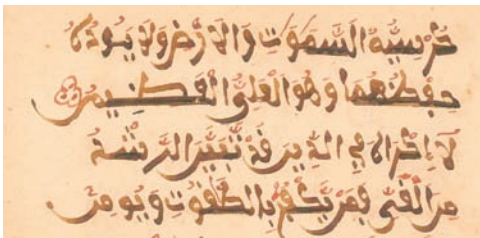 كُرْسِيُّهُ السَّمَوَٰتِ وَالَارْضَ وَلَا يَـُٔودُهُ
حِفْظُهُمَا وَهُوَ الْعَلِىُّ الْعَظِيمُ
لَا إِكْرَاهَ فِي الدِّينِ قَد تَّبَيَّنَ الرُّشْدُ
مِنَ الْغَىِّ فَمَنْ يَّكْفُرْ بِالطَّٰغُوتِ وَيُومِنۢ